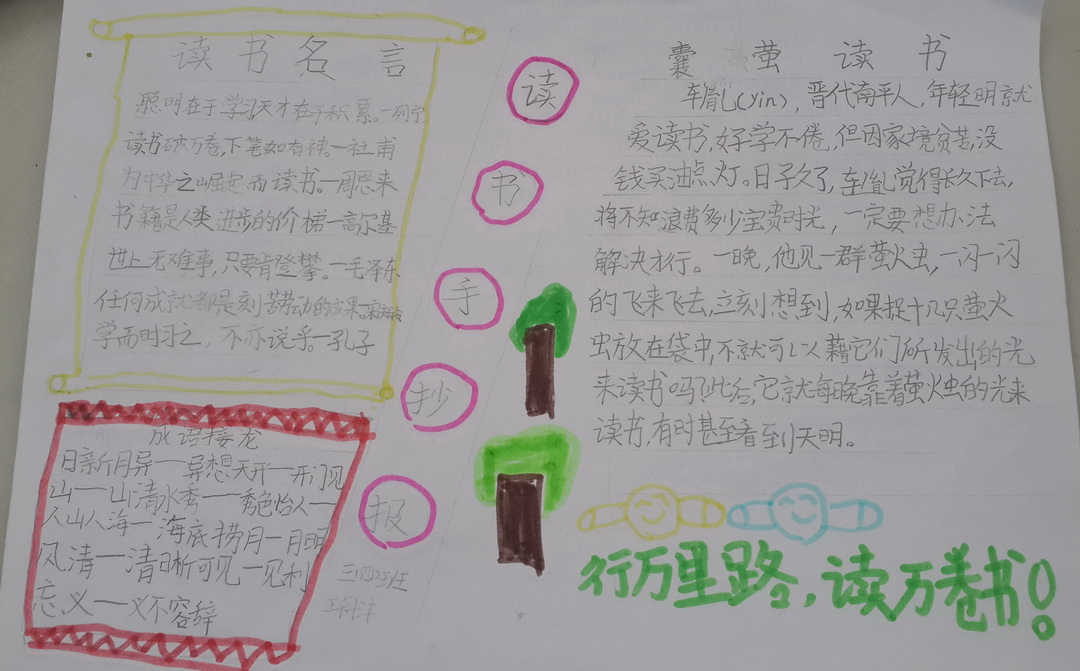 读书名言
聪明在于学习天才在于积累。一列宁
读书破万卷,下笔如有神。一杜甫
为中华之崛起而读书。一周恩来
书籍是人类进步的价梯一高尔基
世上无难事,只要肯登攀。一毛泽东
任何成就都是刻苦劳动的成果。宋庆龄
学而时习之,不亦说乎。一孔子
成语接龙
日新月异一异想天开一开门见
山一山清水秀一秀色怡人一
人山人海一海底捞月一月明
风清一清晰可见一见利
忘义一义不容辞
读
书
手
抄
报
三(四)班
囊萤读书
车胤(yin),晋代南平人,年轻明就
爱读书,好学不倦,但因家境贫苦,没
钱买油点灯。日子久了,车胤觉得长久下去,
将不知浪费多少宝贵时光,一定要想办法
解决才行。一晚,他见一群萤火虫,一闪一闪
的飞来飞去,立刻想到,如果捉十几只萤火
虫放在袋中,不就可以藉它们所发出的光
来读书吗?此后,它就每晚靠着萤火虫的光来
读书,有时甚至看到天明。
行万里路,读万卷书!